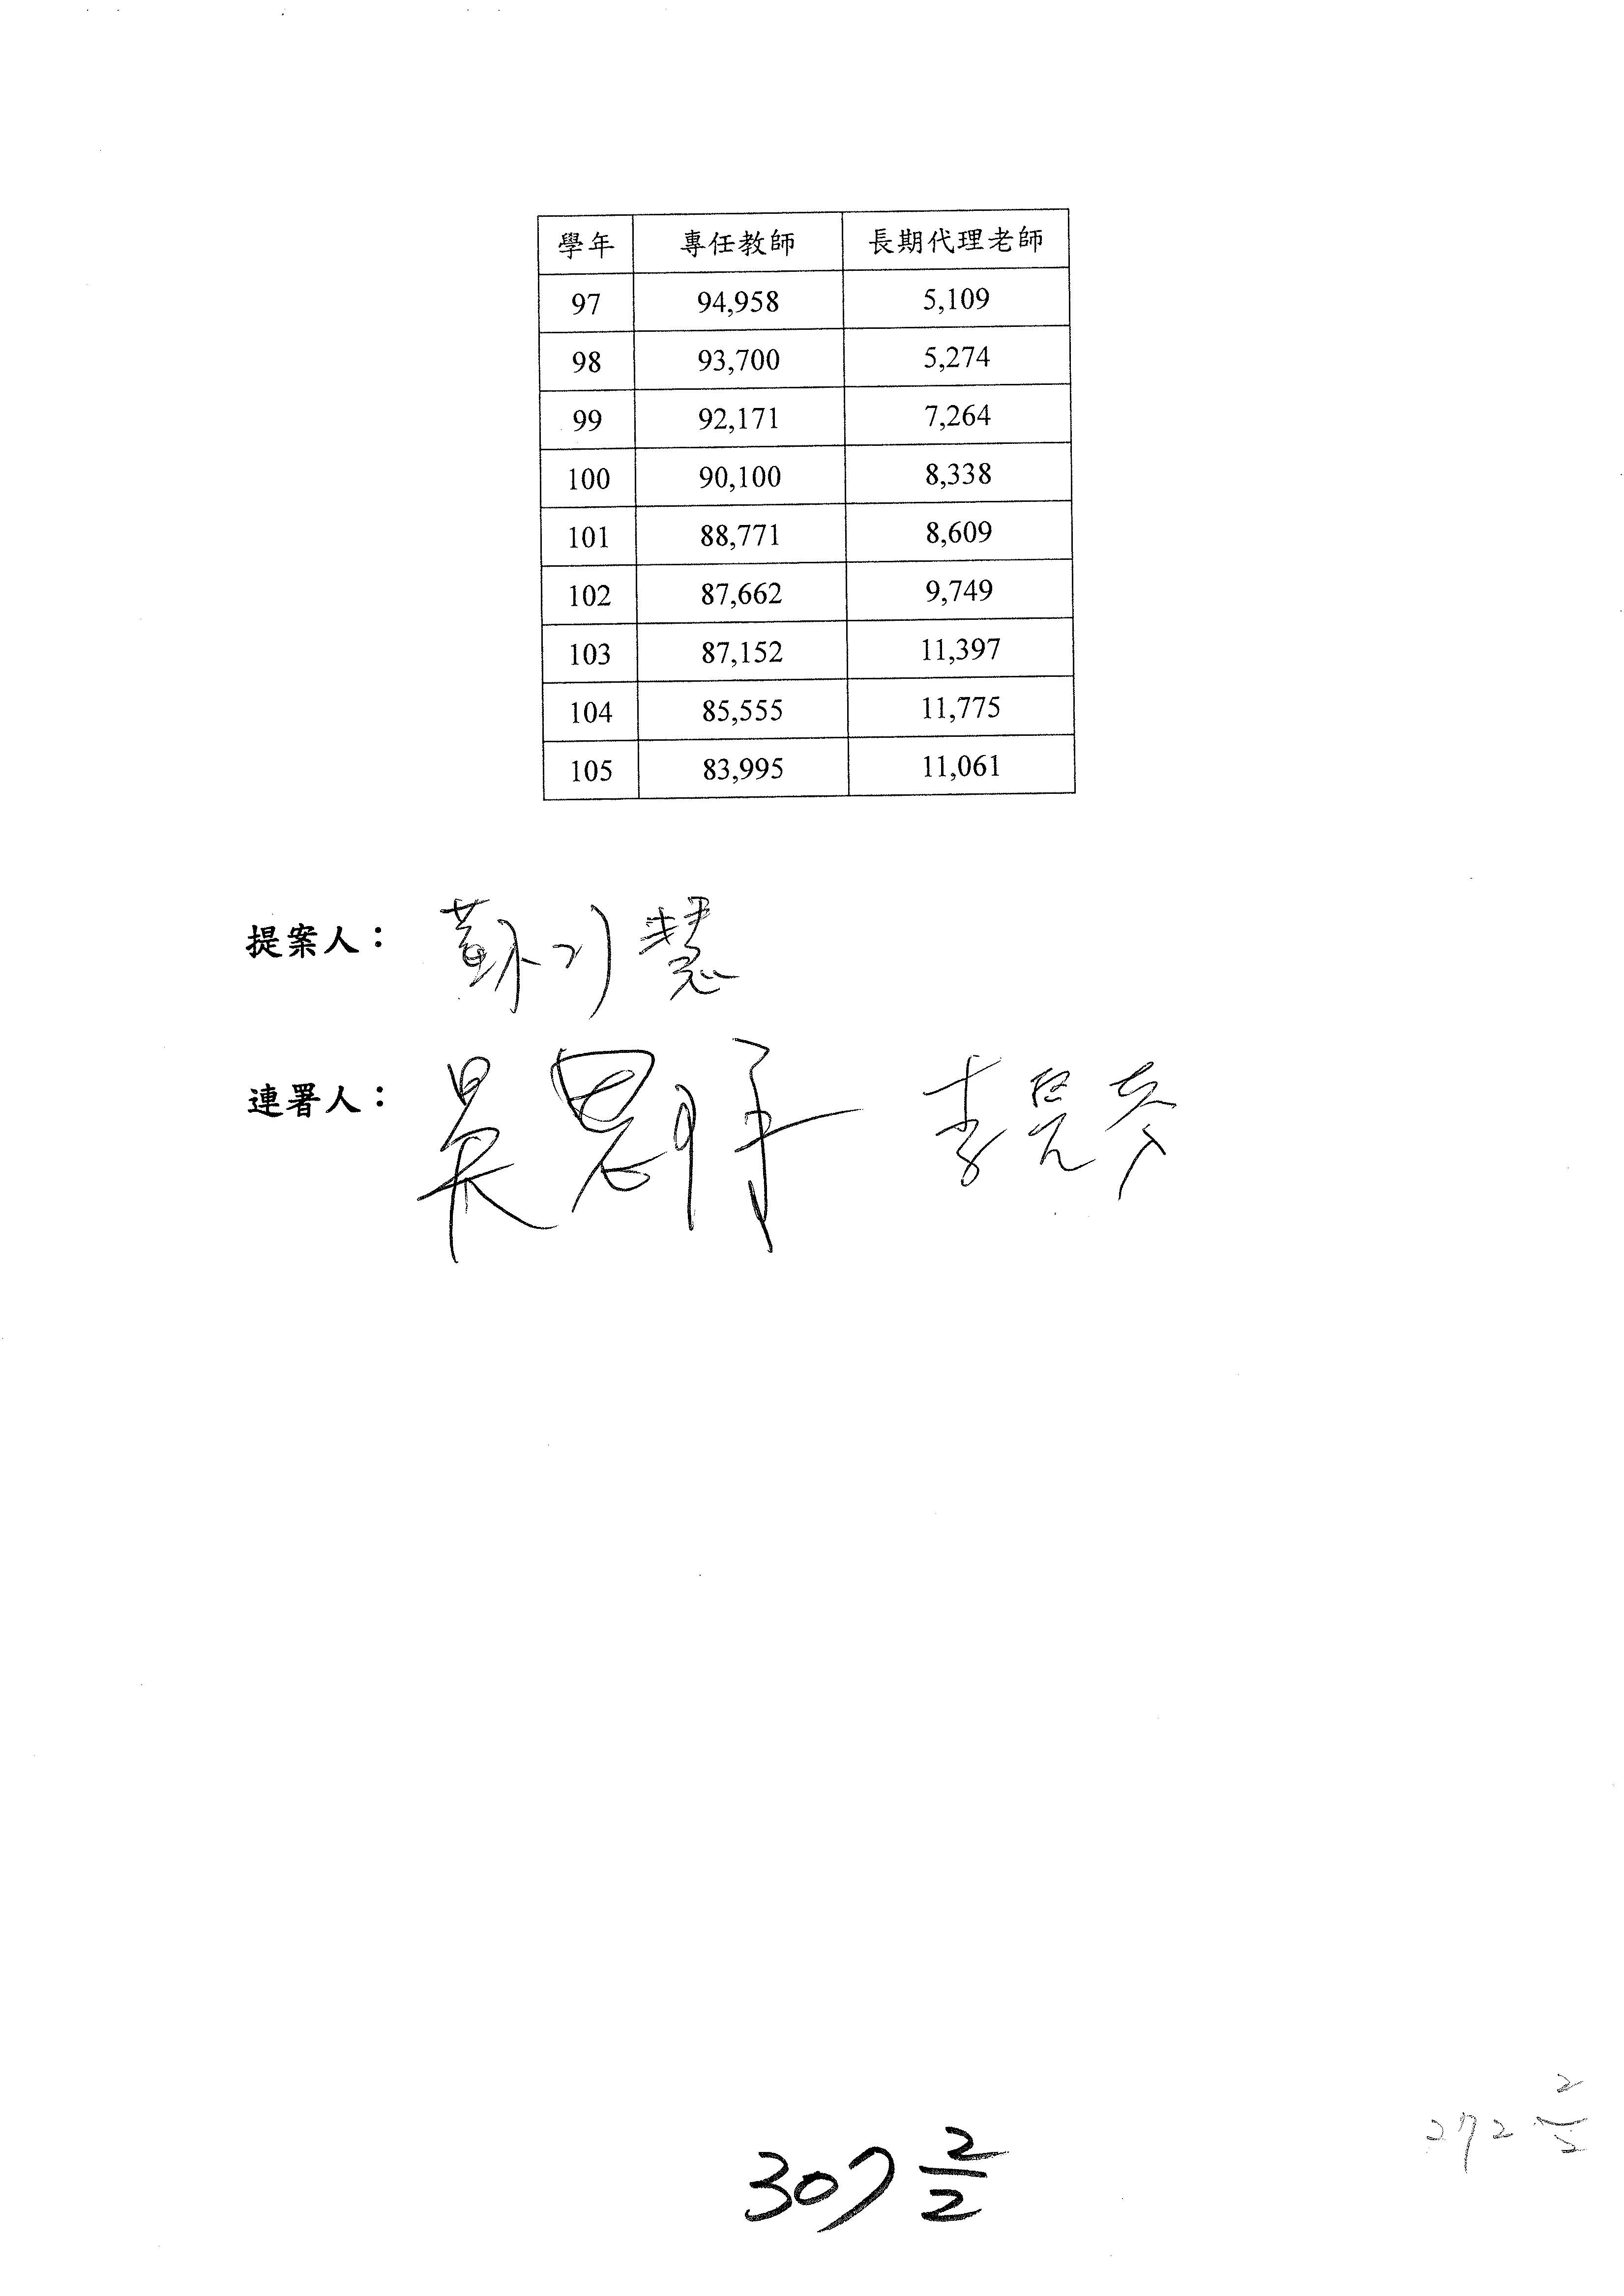 學年 專任教師 長期代理老師
97 94,958 5,109
98 93,700 5,274
99 92,171 7,264
100 90,100 8,338
101 88,771 8,609
102 87,662 9,749
103 87,152 11,397
104 85,555 11,775
105 83,995 11,061
提案人： 蘇巧慧
連署人： 吳思瑤 李昆澤
307 2/2
272 2/2